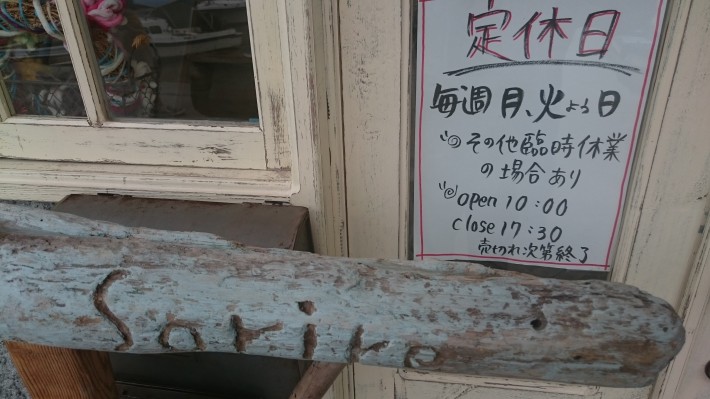 定休日
毎週月、火よう日
その他臨時休業
の場合あり
open 10:00
close 17:30
売切れ次第終了
Sotiko